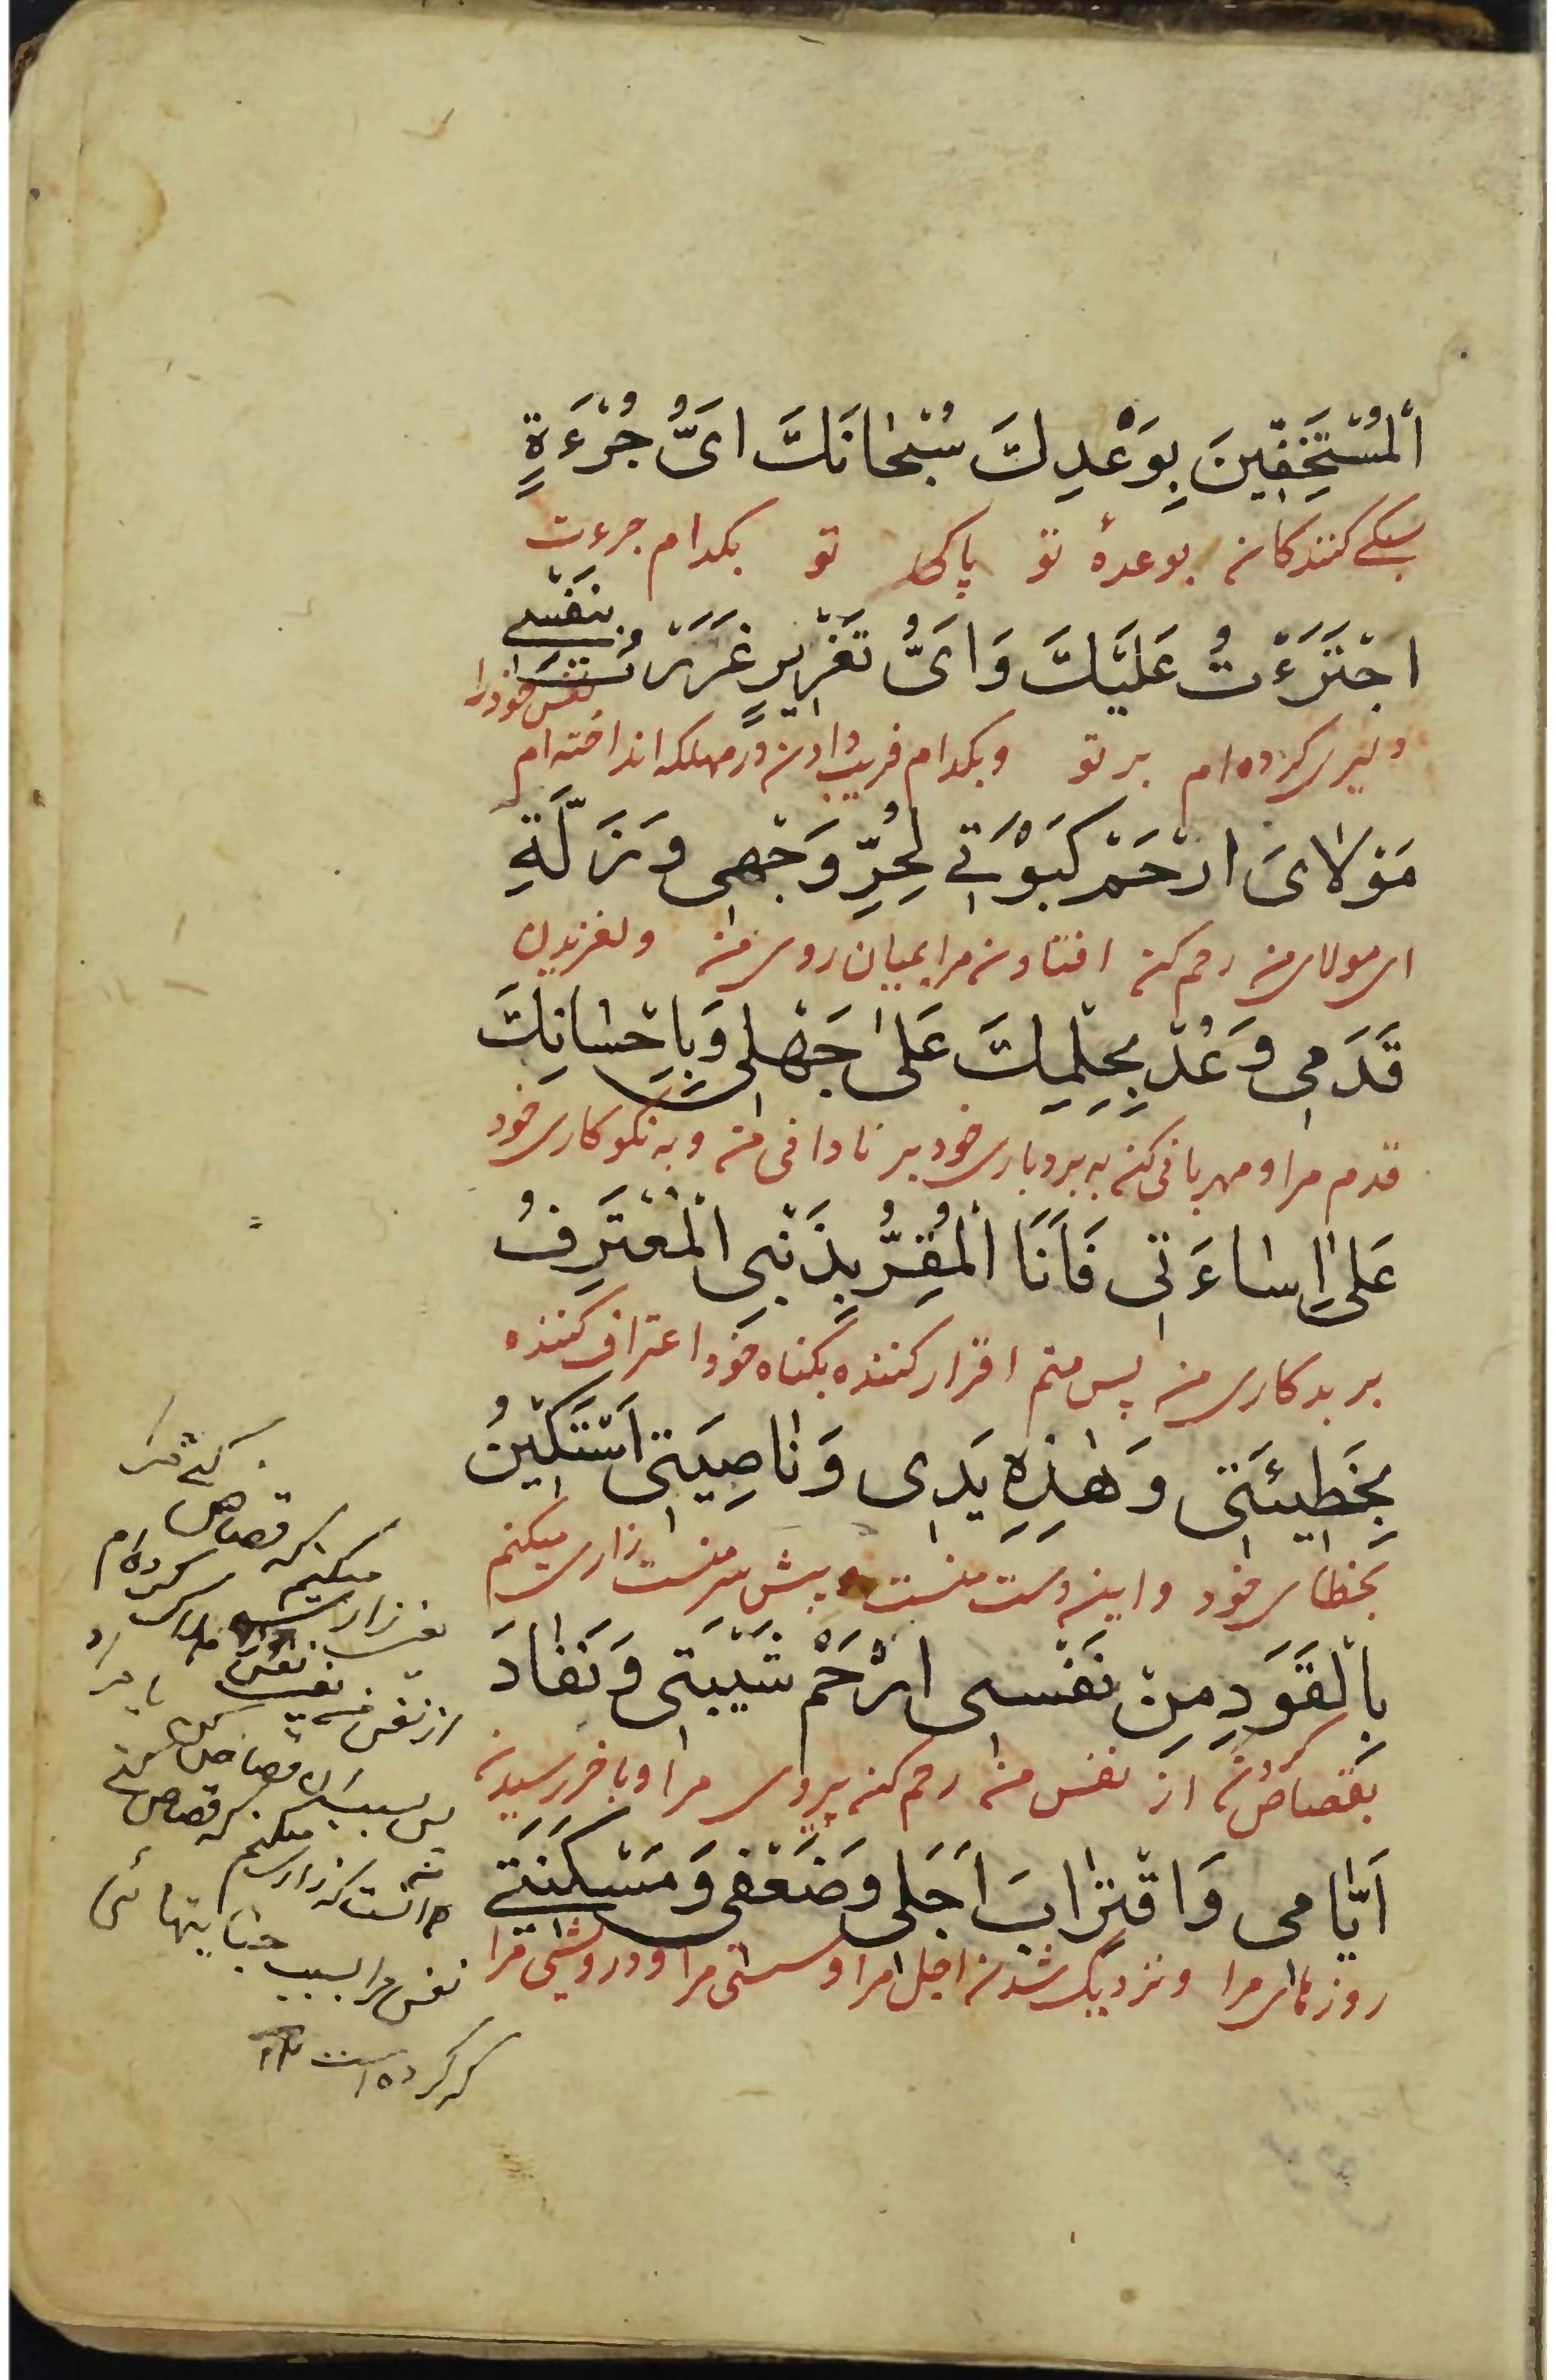 اَلْمُسْتَخِفّینَ بِوَعْدِكَ سُبْحانَكَ اَیُّ جُرْءَةٍ
سبکی کنندکان بوعدهٔ تو پاکی تو بکدام جرءت
اجْتَرَءْتُ عَلَیْكَ وَ اَیُّ تَغْریرٍ غَرَّرْتُ بِنَفْسی
دلیری کرده‌ام بر تو و بکدام فریب دادن در مهلکه انداخته‌ام نفس خود را
مَوْلایَ ارْحَمْ كَبْوَتی لِحُرِّ وَجْهی وَ زَلَّةِ
ای مولای من رحم کن افتادن مرا بمیان روی من و لغزیدن
قَدَمی وَعُدْ بِحِلْمِكَ عَلیٰ جَهْلی وَ بِاِحْسانِكَ
قدم مرا و مهربانی کن به بردباری خود بر نادانی من و به نکوکاری خود
عَلیٰ اِساءَتی فَاَنَا الْمُقِرُّ بِذَنْبِی الْمُعْتَرِفُ
بر بدکاری من پس منم اقرار کننده بکناه خود اعتراف کننده
بِخَطیئَتی وَ هٰذِهِ یَدی وَ ناصِیَتی اَسْتَكینُ
بخطای خود و اینه دست منست و پیش سر منست زاری میکنم
بِالْقَوَدِ مِنْ نَفْسی ارْحَمْ شَیْبَتی وَ نَفادَ
بقصاص کردن از نفس من رحم کن پیری مرا و باخر رسیدن
اَیّامی وَ اقْتِرابَ اَجَلی وَ ضَعْفی وَ مَسْكَنَتی
روزهای مرا و نزدیک شدن اجل مرا و سستی مرا و درویشی مرا
که قصاص
میکنم
از نفس
که قصاص
میکنم
نفس مرا بسبب
که کرده است